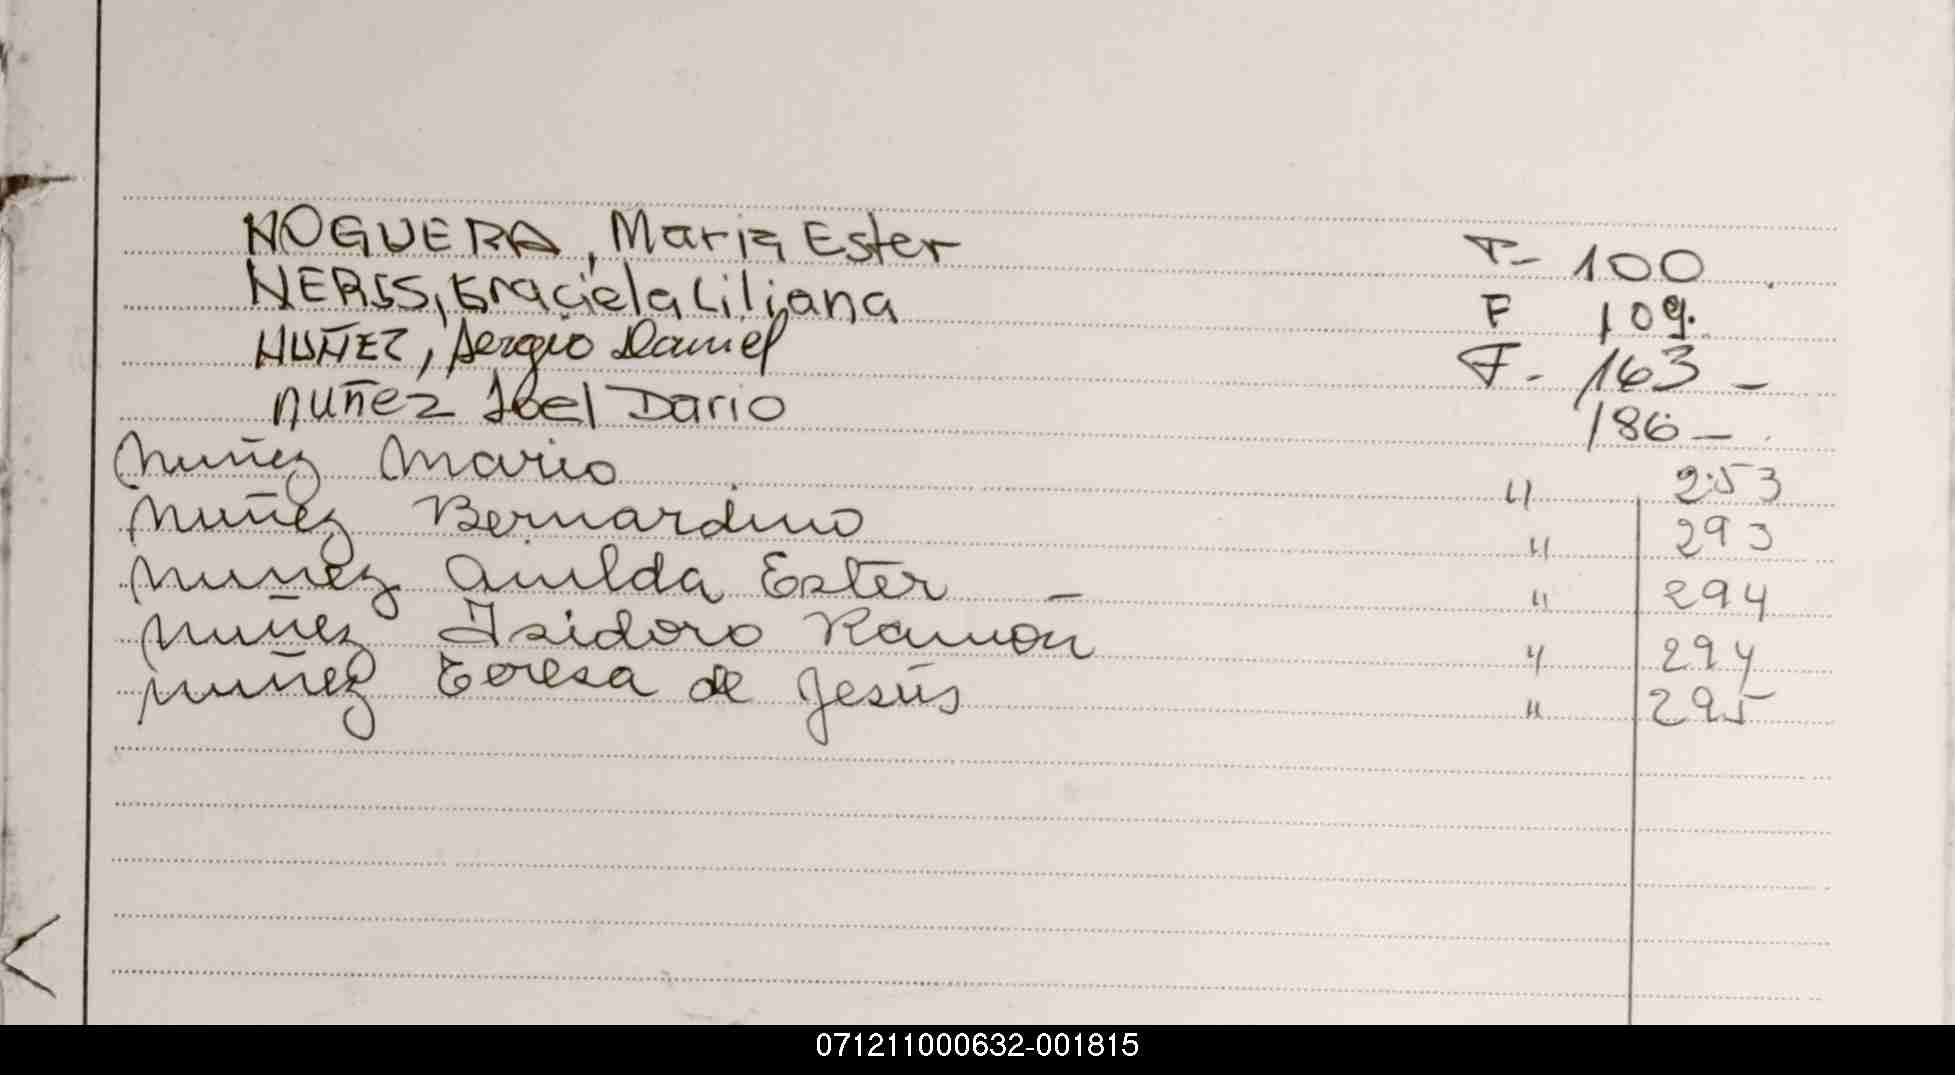 NOGUERA, Maria Ester F- 100
NERIS, Graciela Liliana F 109.
NUÑEZ, Sergio Daniel F- 163 -
Nuñez Joel Dario 186 -
Nuñez Mario " 253
Nuñez Bernardino " 293
Nuñez Anilda Ester - " 294
Nuñez Isidoro Ramon " 294
Nuñez Teresa de Jesús " 295
071211000632-001815